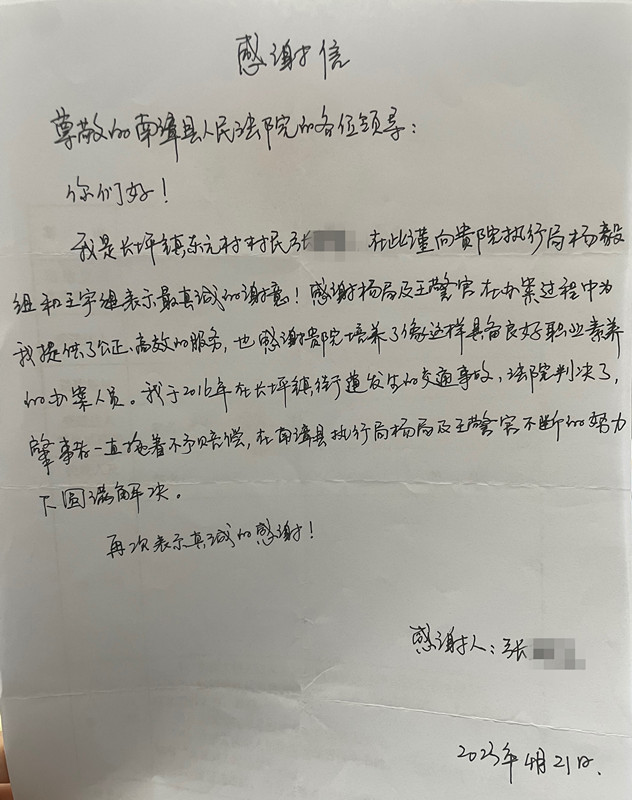 感谢信
尊敬的南漳县人民法院的各位领导：
你们好！
我是长坪镇东元村村民张 在此谨向贵院执行局杨毅
组和王宇组表示最真诚的谢意！感谢杨局及王警官在办案过程中为
我提供了公正、高效的服务，也感谢贵院培养了像这样具备良好职业素养
的办案人员。我于2016年在长坪镇街道发生的交通事故，法院判决了，
肇事者一直拖着不予赔偿，在南漳县执行局杨局及王警官不断的努力
下圆满解决。
再次表示真诚的感谢！
感谢人：张
2023年4月21日.